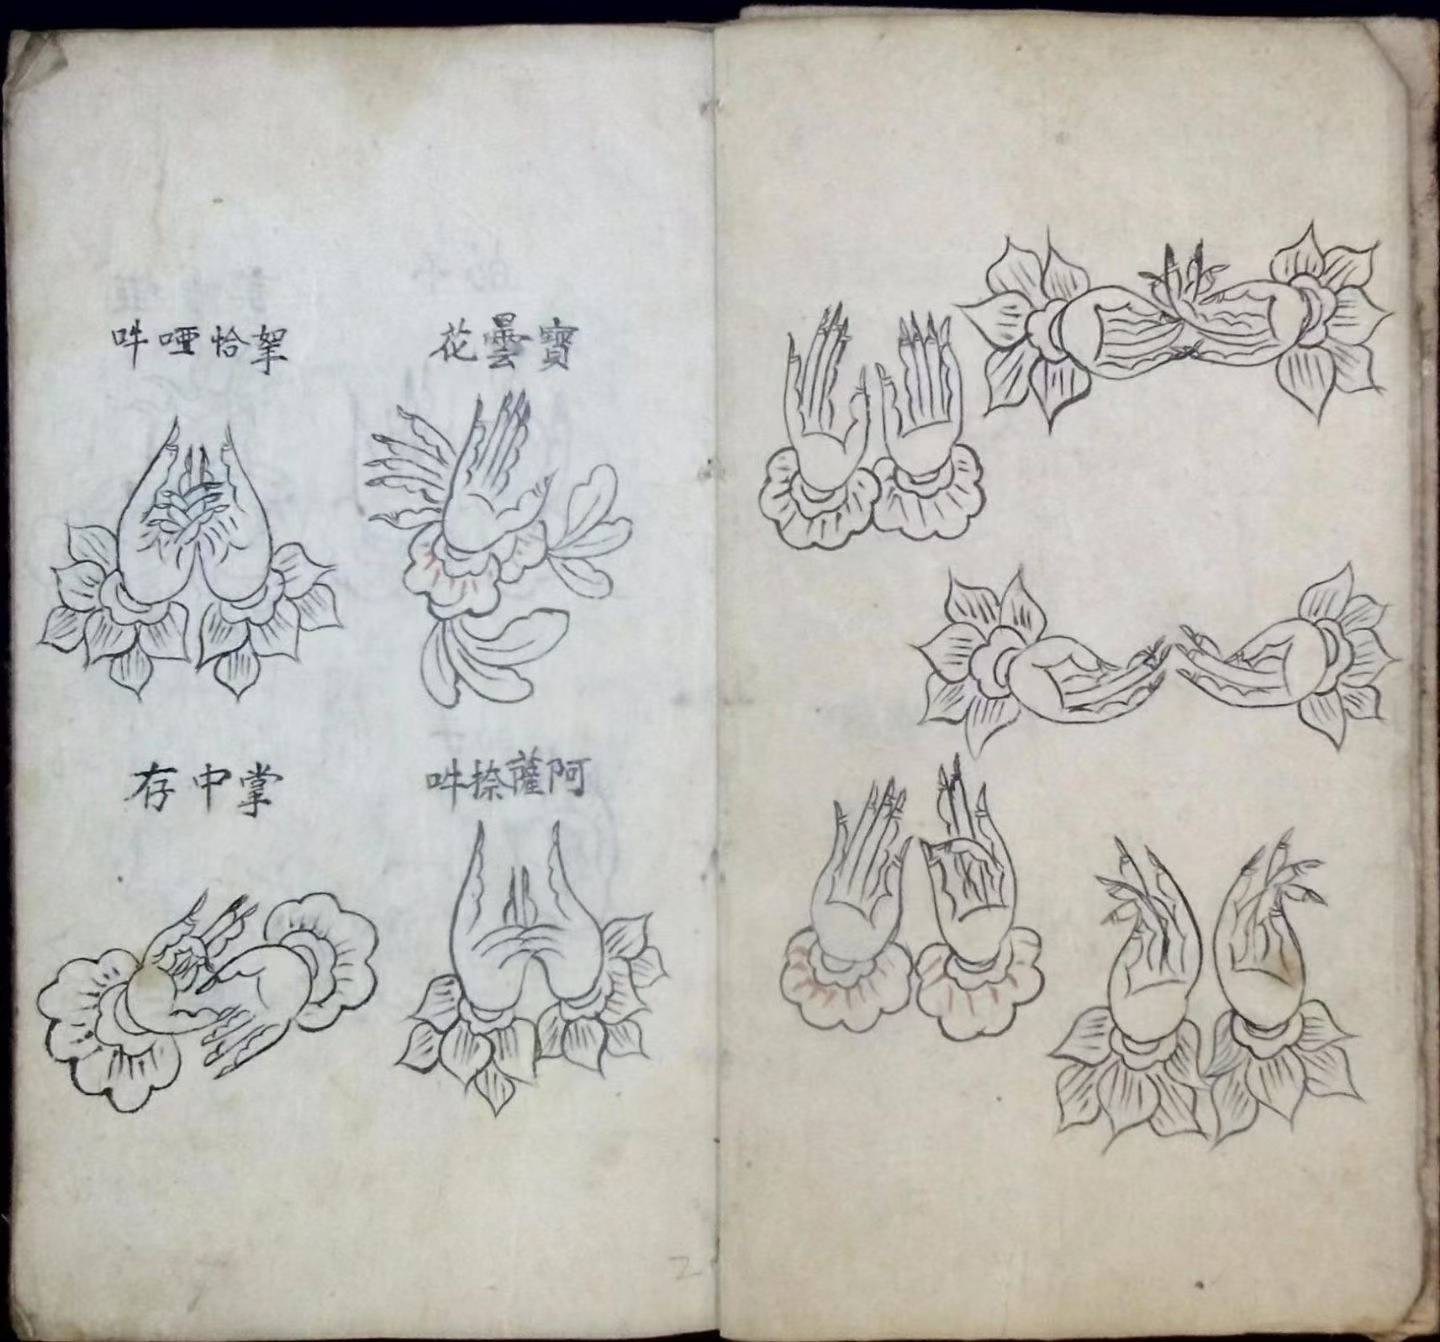 寶曇花
挐恰啞吽
阿薩捺吽
掌中存